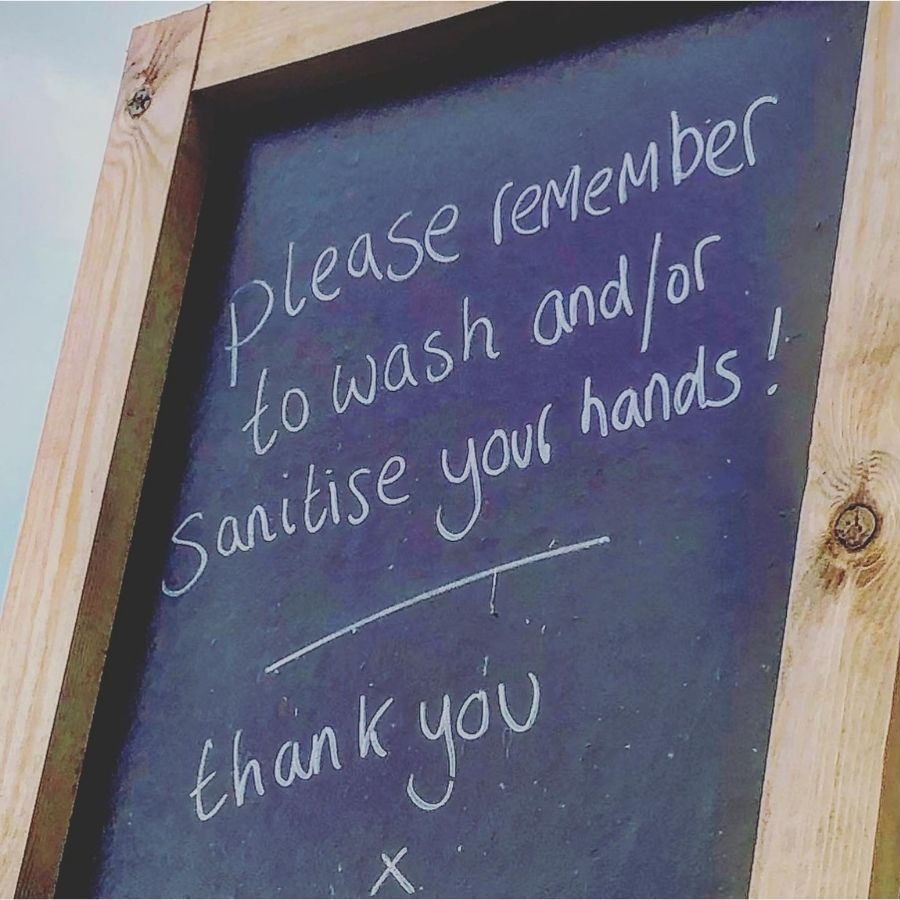 please remember
to wash and/or
sanitise your hands!
thank you
x